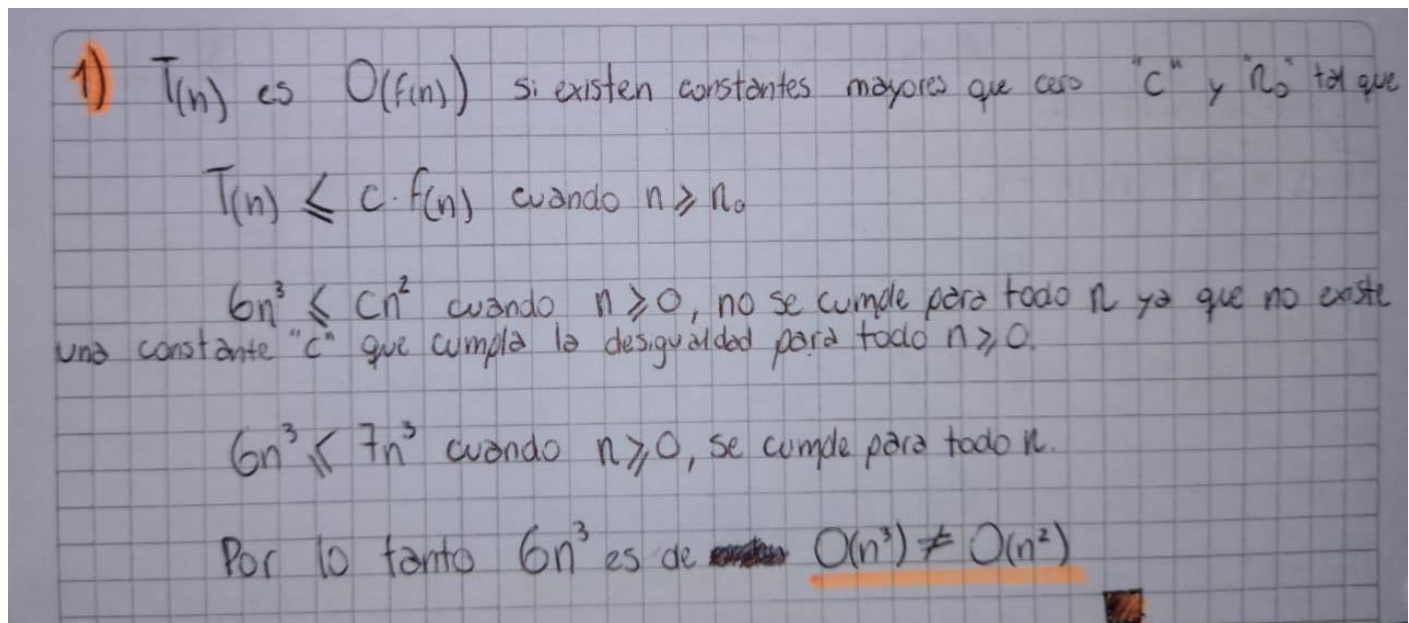 1) T(n) es O(f(n)) si existen constantes mayores que cero "c" y "n₀" tal que
T(n) ≤ c·f(n) cuando n ≥ n₀
6n³ ≤ cn² cuando n ≥ 0, no se cumple para todo n ya que no existe
una constante "c" que cumpla la desigualdad para todo n ≥ 0.
6n³ ≤ 7n³ cuando n ≥ 0, se cumple para todo n.
Por lo tanto 6n³ es de O(n³) ≠ O(n²)